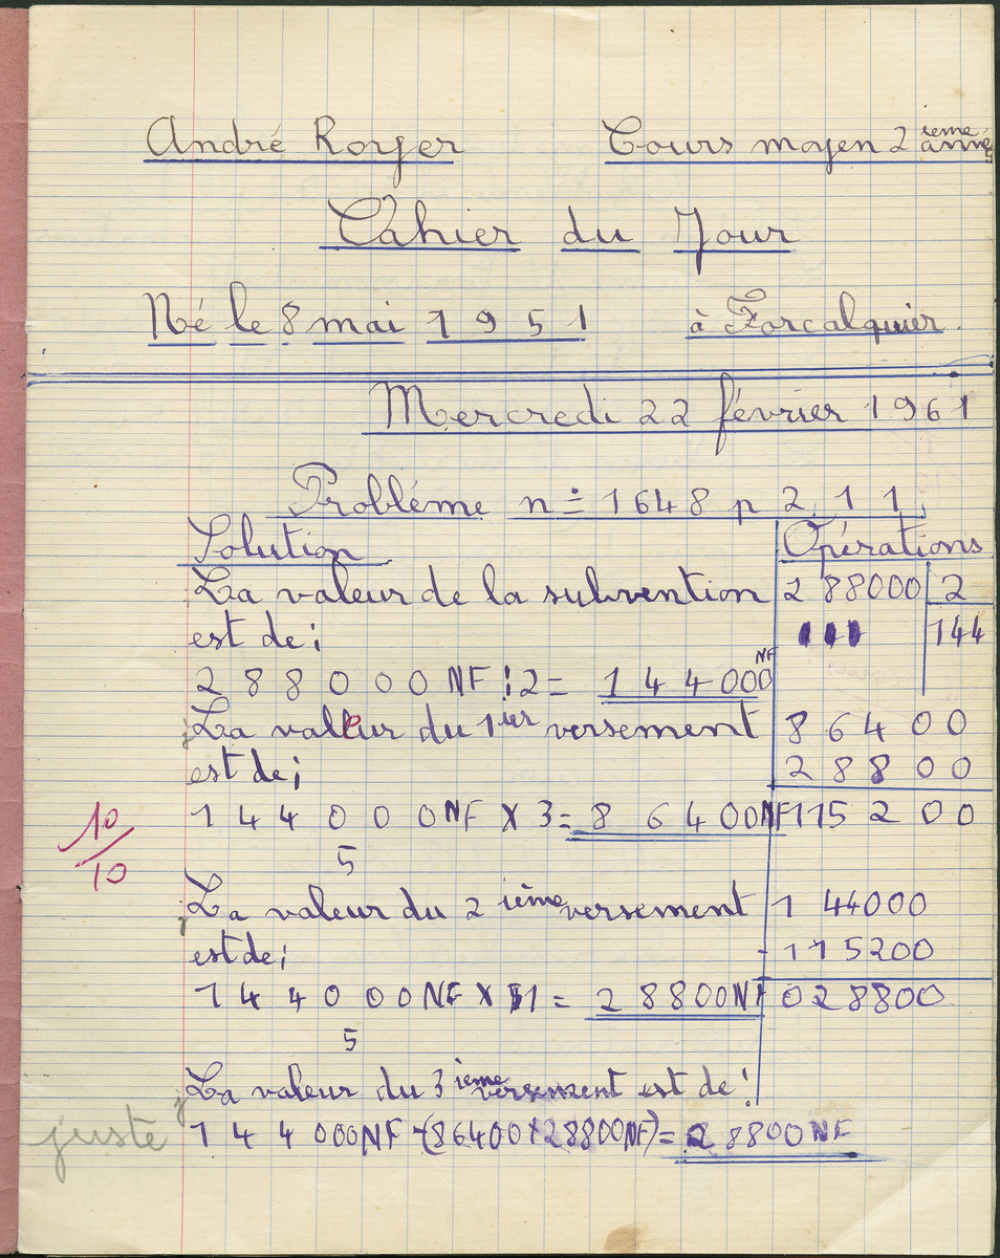 André Royer Cours moyen 2 ième année
Cahier du Jour
Né le 8 mai 1951 à Forcalquier.
Mercredi 22 février 1961
Probléme n° 1648 p 211
Solution
Opérations
La valeur de la subvention
est de :
288000 NF : 2 = 144000 NF
288000 | 2
144
La valeur du 1ier versement
est de ;
144000 NF X 3 = 86400 NF
5
86400
28800
115200
10/10
La valeur du 2 ième versement
est de ;
144000 NF X 1 = 28800 NF
5
144000
- 115200
028800
La valeur du 3 ième versement est de :
144000 NF -(86400+28800NF)= 28800 NF
juste